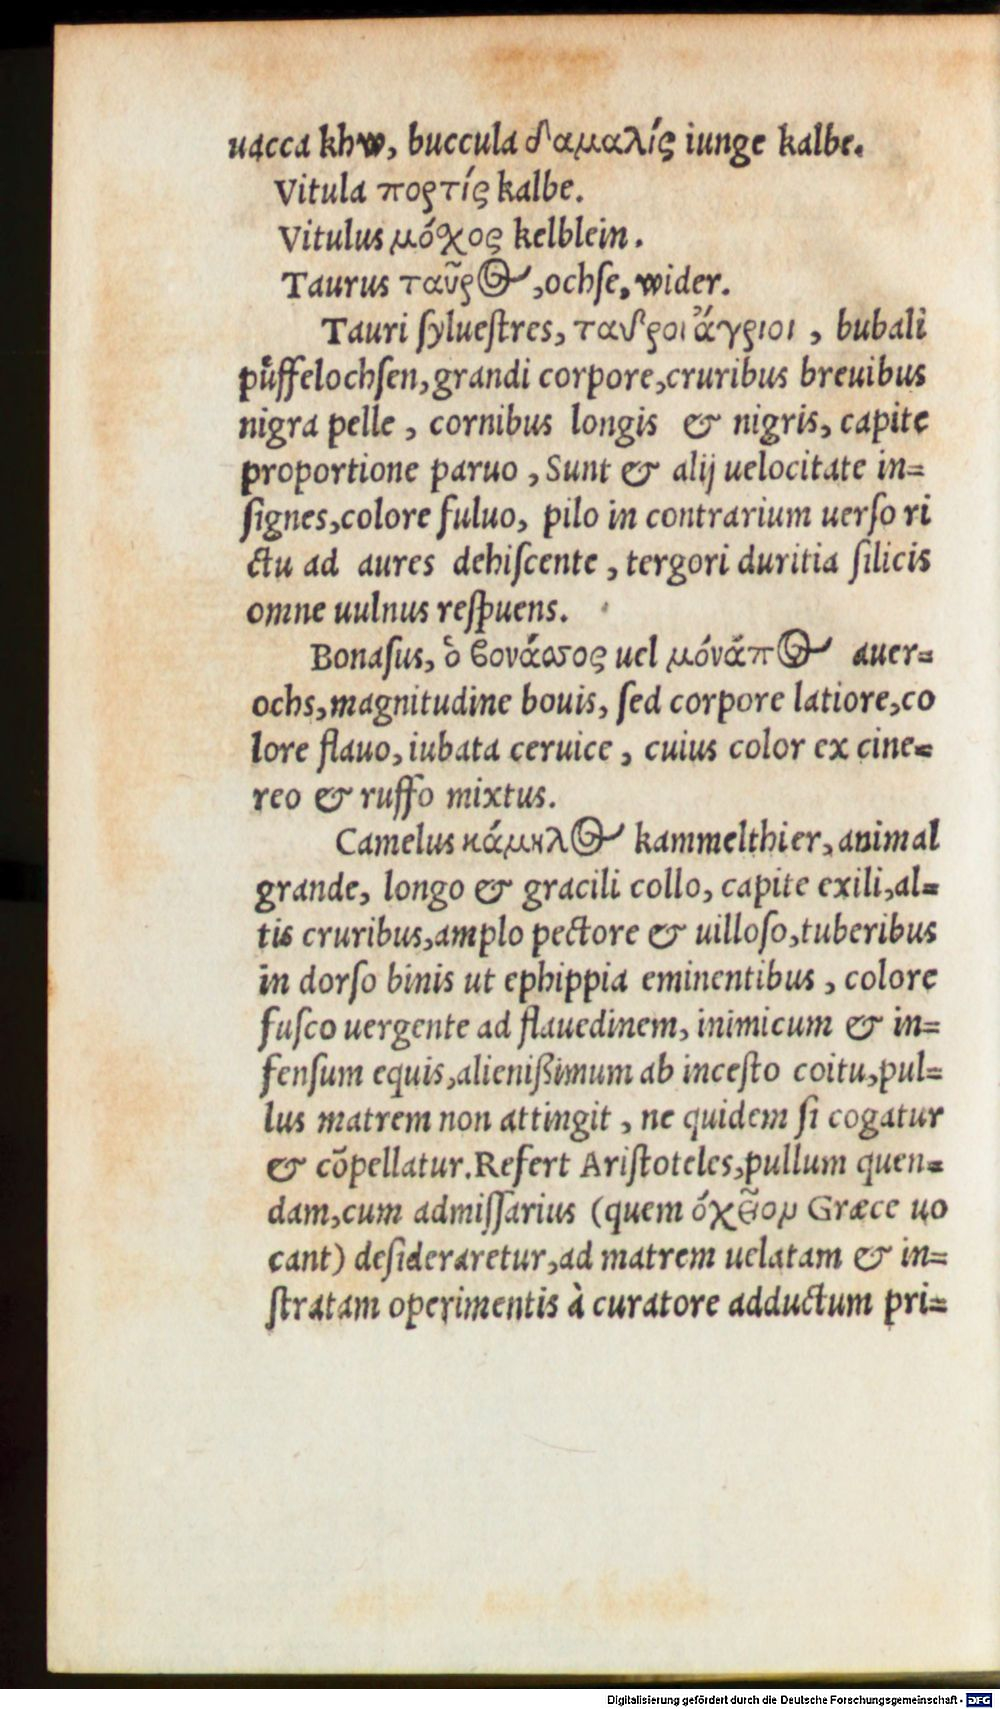 uacca khw, buccula δαμαλίς iunge kalbe.
Vitula πορτίς kalbe.
Vitulus μόχος kelblein.
Taurus ταῦρος, ochse, wider.
Tauri ſylueſtres, ταῦροι ἄγριοι, bubali
pùffelochſen, grandi corpore, cruribus breuibus
nigra pelle, cornibus longis & nigris, capite
proportione paruo, Sunt & alij uelocitate in=
ſignes, colore fuluo, pilo in contrarium uerſo ri
ctu ad aures dehiſcente, tergori duritia ſilicis
omne uulnus reſpuens.
Bonaſus, ὁ βονάσσος uel μόνάπος auer=
ochs, magnitudine bouis, ſed corpore latiore, co
lore flauo, iubata ceruice, cuius color ex cine=
reo & ruffo mixtus.
Camelus κάμηλος kammelthier, animal
grande, longo & gracili collo, capite exili, al=
tis cruribus, amplo pectore & uilloſo, tuberibus
in dorſo binis ut ephippia eminentibus, colore
fuſco uergente ad flauedinem, inimicum & in=
fenſum equis, alienißimum ab inceſto coitu, pul=
lus matrem non attingit, ne quidem ſi cogatur
& cõpellatur. Refert Ariſtoteles, pullum quen=
dam, cum admiſſarius (quem Græce uo
cant) deſideraretur, ad matrem uelatam & in=
ſtratam operimentis à curatore adductum pri=
Digitalisierung gefördert durch die Deutsche Forschungsgemeinschaft - DFG